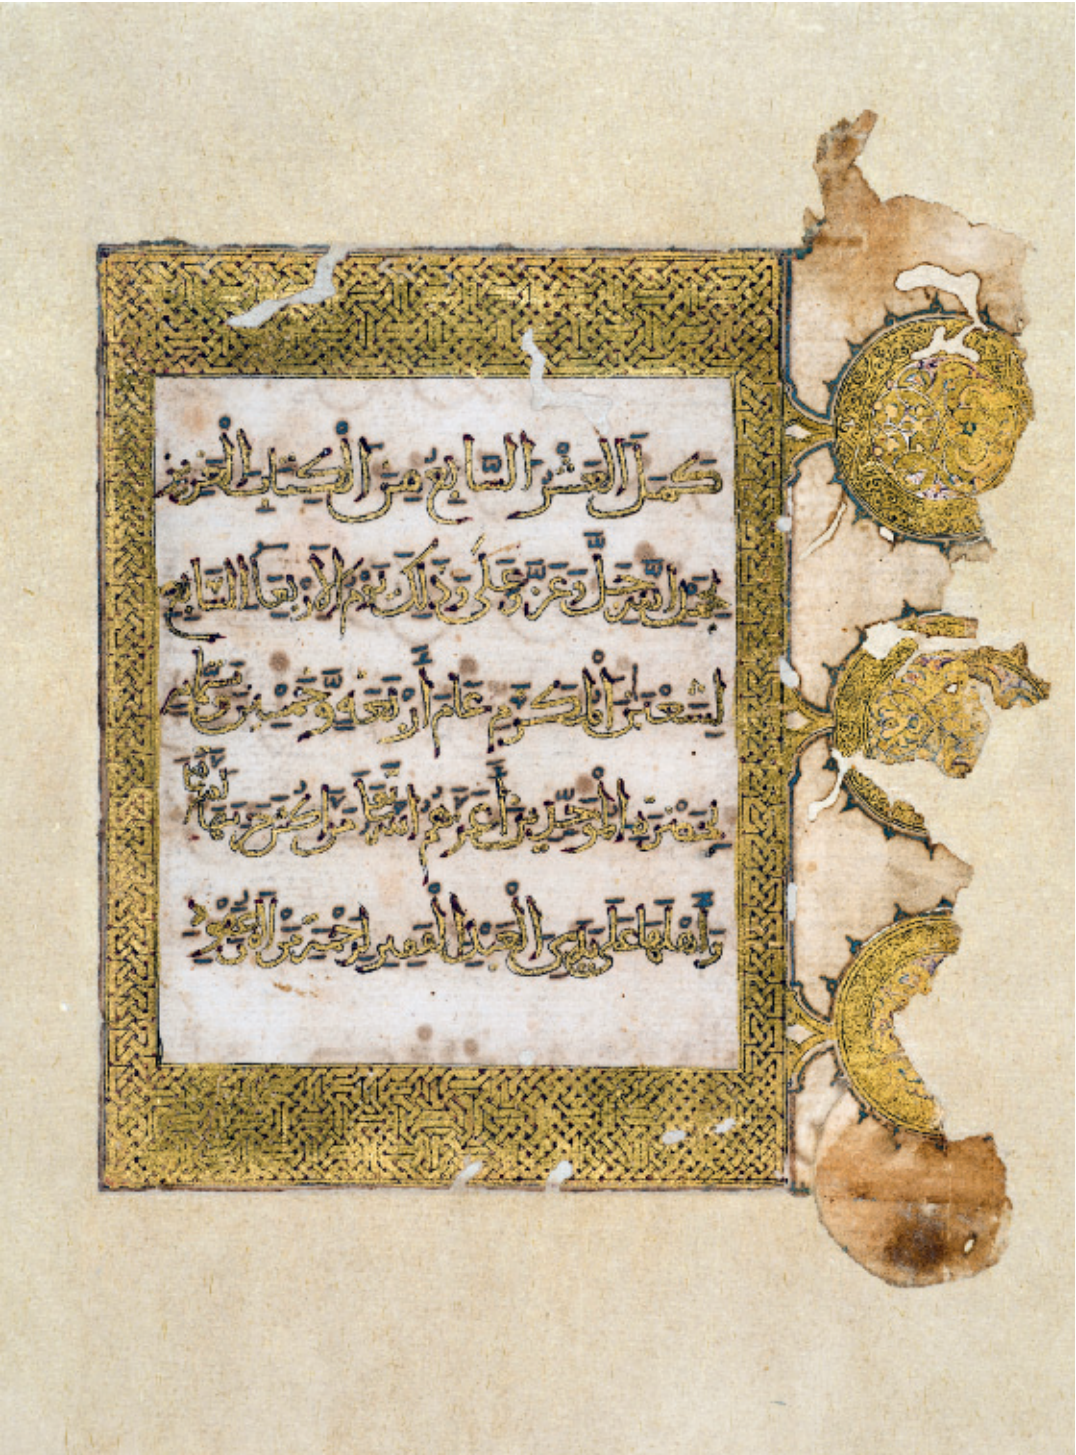 كمل العشر السابع من الكتاب العزيز
بحمد الله جل وعز وعلى وذلك يوم الاربعا السابع
لشعبان المكرم عام أربعة وخمسين وستماية
بحضرة الموحدين أعزهم الله تعلى مراكش حرسها الله
وأهلها على يدي العبد الفقير لرحمة